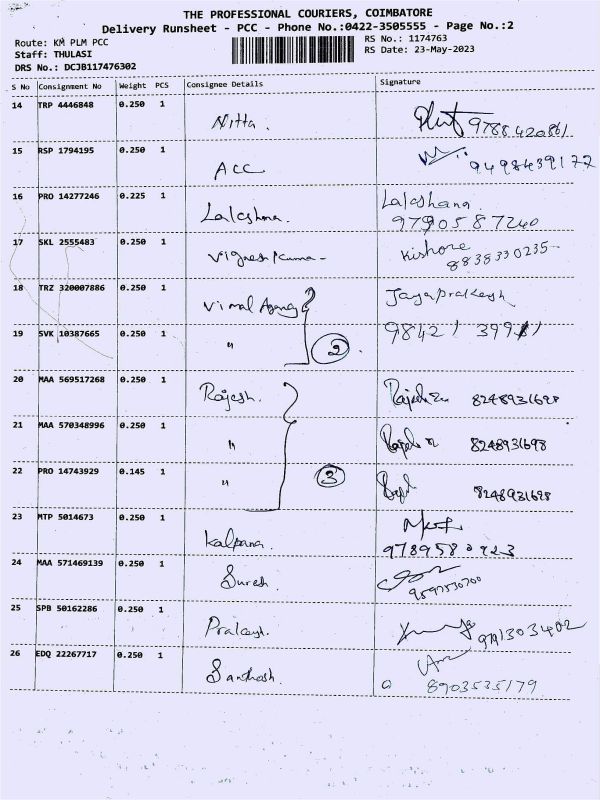 THE PROFESSIONAL COURIERS, COIMBATORE
Delivery Runsheet - PCC - Phone No.:0422-3505555 - Page No.:2
Route: KM PLM PCC
RS No.: 1174763
Staff: THULASI
RS Date: 23-May-2023
DRS No.: DCJB117476302
S No Consignment No Weight PCS Consignee Details Signature
14 TRP 4446848 0.250 1 Nitta.
9788420861
15 RSP 1794195 0.250 1 ACC
9498439177
16 PRO 14277246 0.225 1 Lalcshma. Lalcshana
9790587240
17 SKL 2555483 0.250 1 Vignesh Kuma- Kishore
8838330235
18 TRZ 320007886 0.250 1 Vimal Agency Jayaprakash
19 SVK 10387665 0.250 1 " 2 98421 39991
20 MAA 569517268 0.250 1 Rajesh. 8248931698
21 MAA 570348996 0.250 1 " 8248931698
22 PRO 14743929 0.145 1 " 3 8248931698
23 MTP 5014673 0.250 1 Kalpana.
9789580923
24 MAA 571469139 0.250 1 Suresh.
9597530700
25 SPB 50162286 0.250 1 Prakash.
26 EDQ 22267717 0.250 1 Santhosh.
8903535179